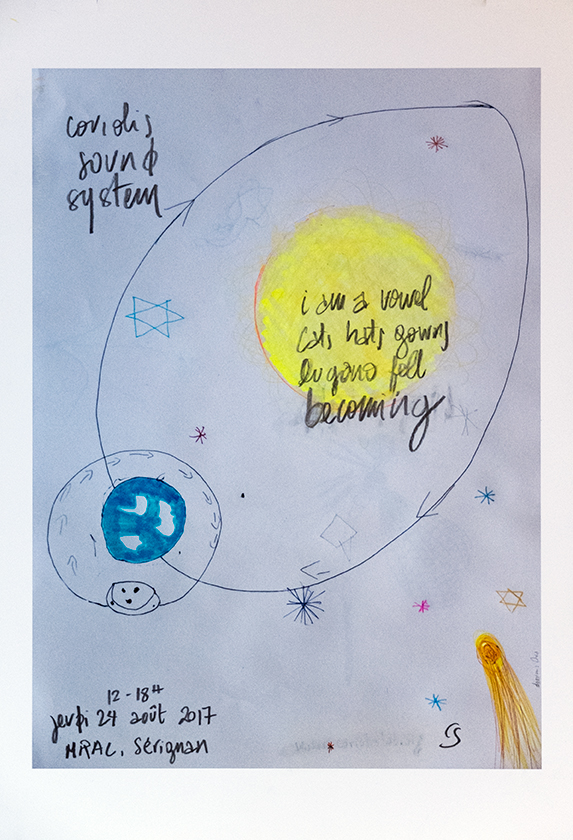 coriolis
sound
system
i am a vowel
cats hats gowns
lugano fell
becoming
12-18H
jeudi 24 août 2017
MRAC, Sérignan
CS